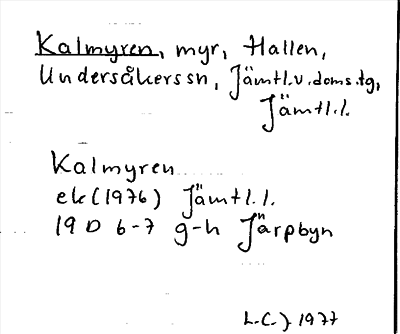 Kalmyren, myr, Hallen,
Undersåkerssn, Jämtl.v.doms.tg,
Jämtl.l.
Kalmyren
ek(1976) Jämtl.l.
19 D 6-7 g-h Järpbyn
L.C.J. 1977